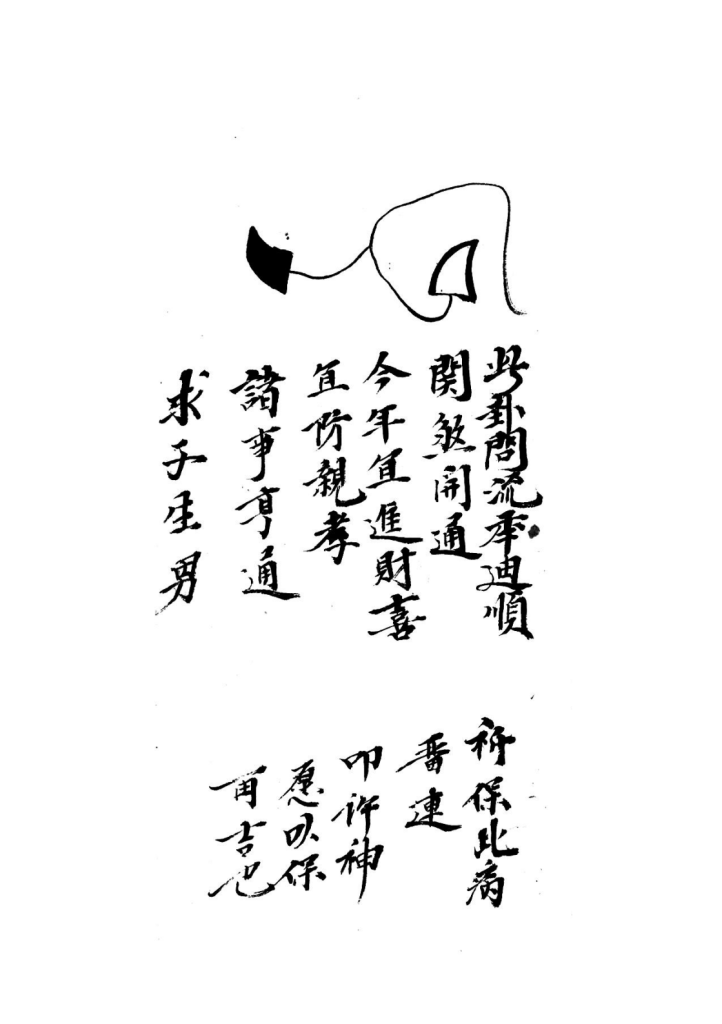 此卦問流年迪順
関煞開通
今年宜進財喜
宜防親孝
諸事亨通
求子生男
祈保此病
番連
叩許神
愿以保
再吉也